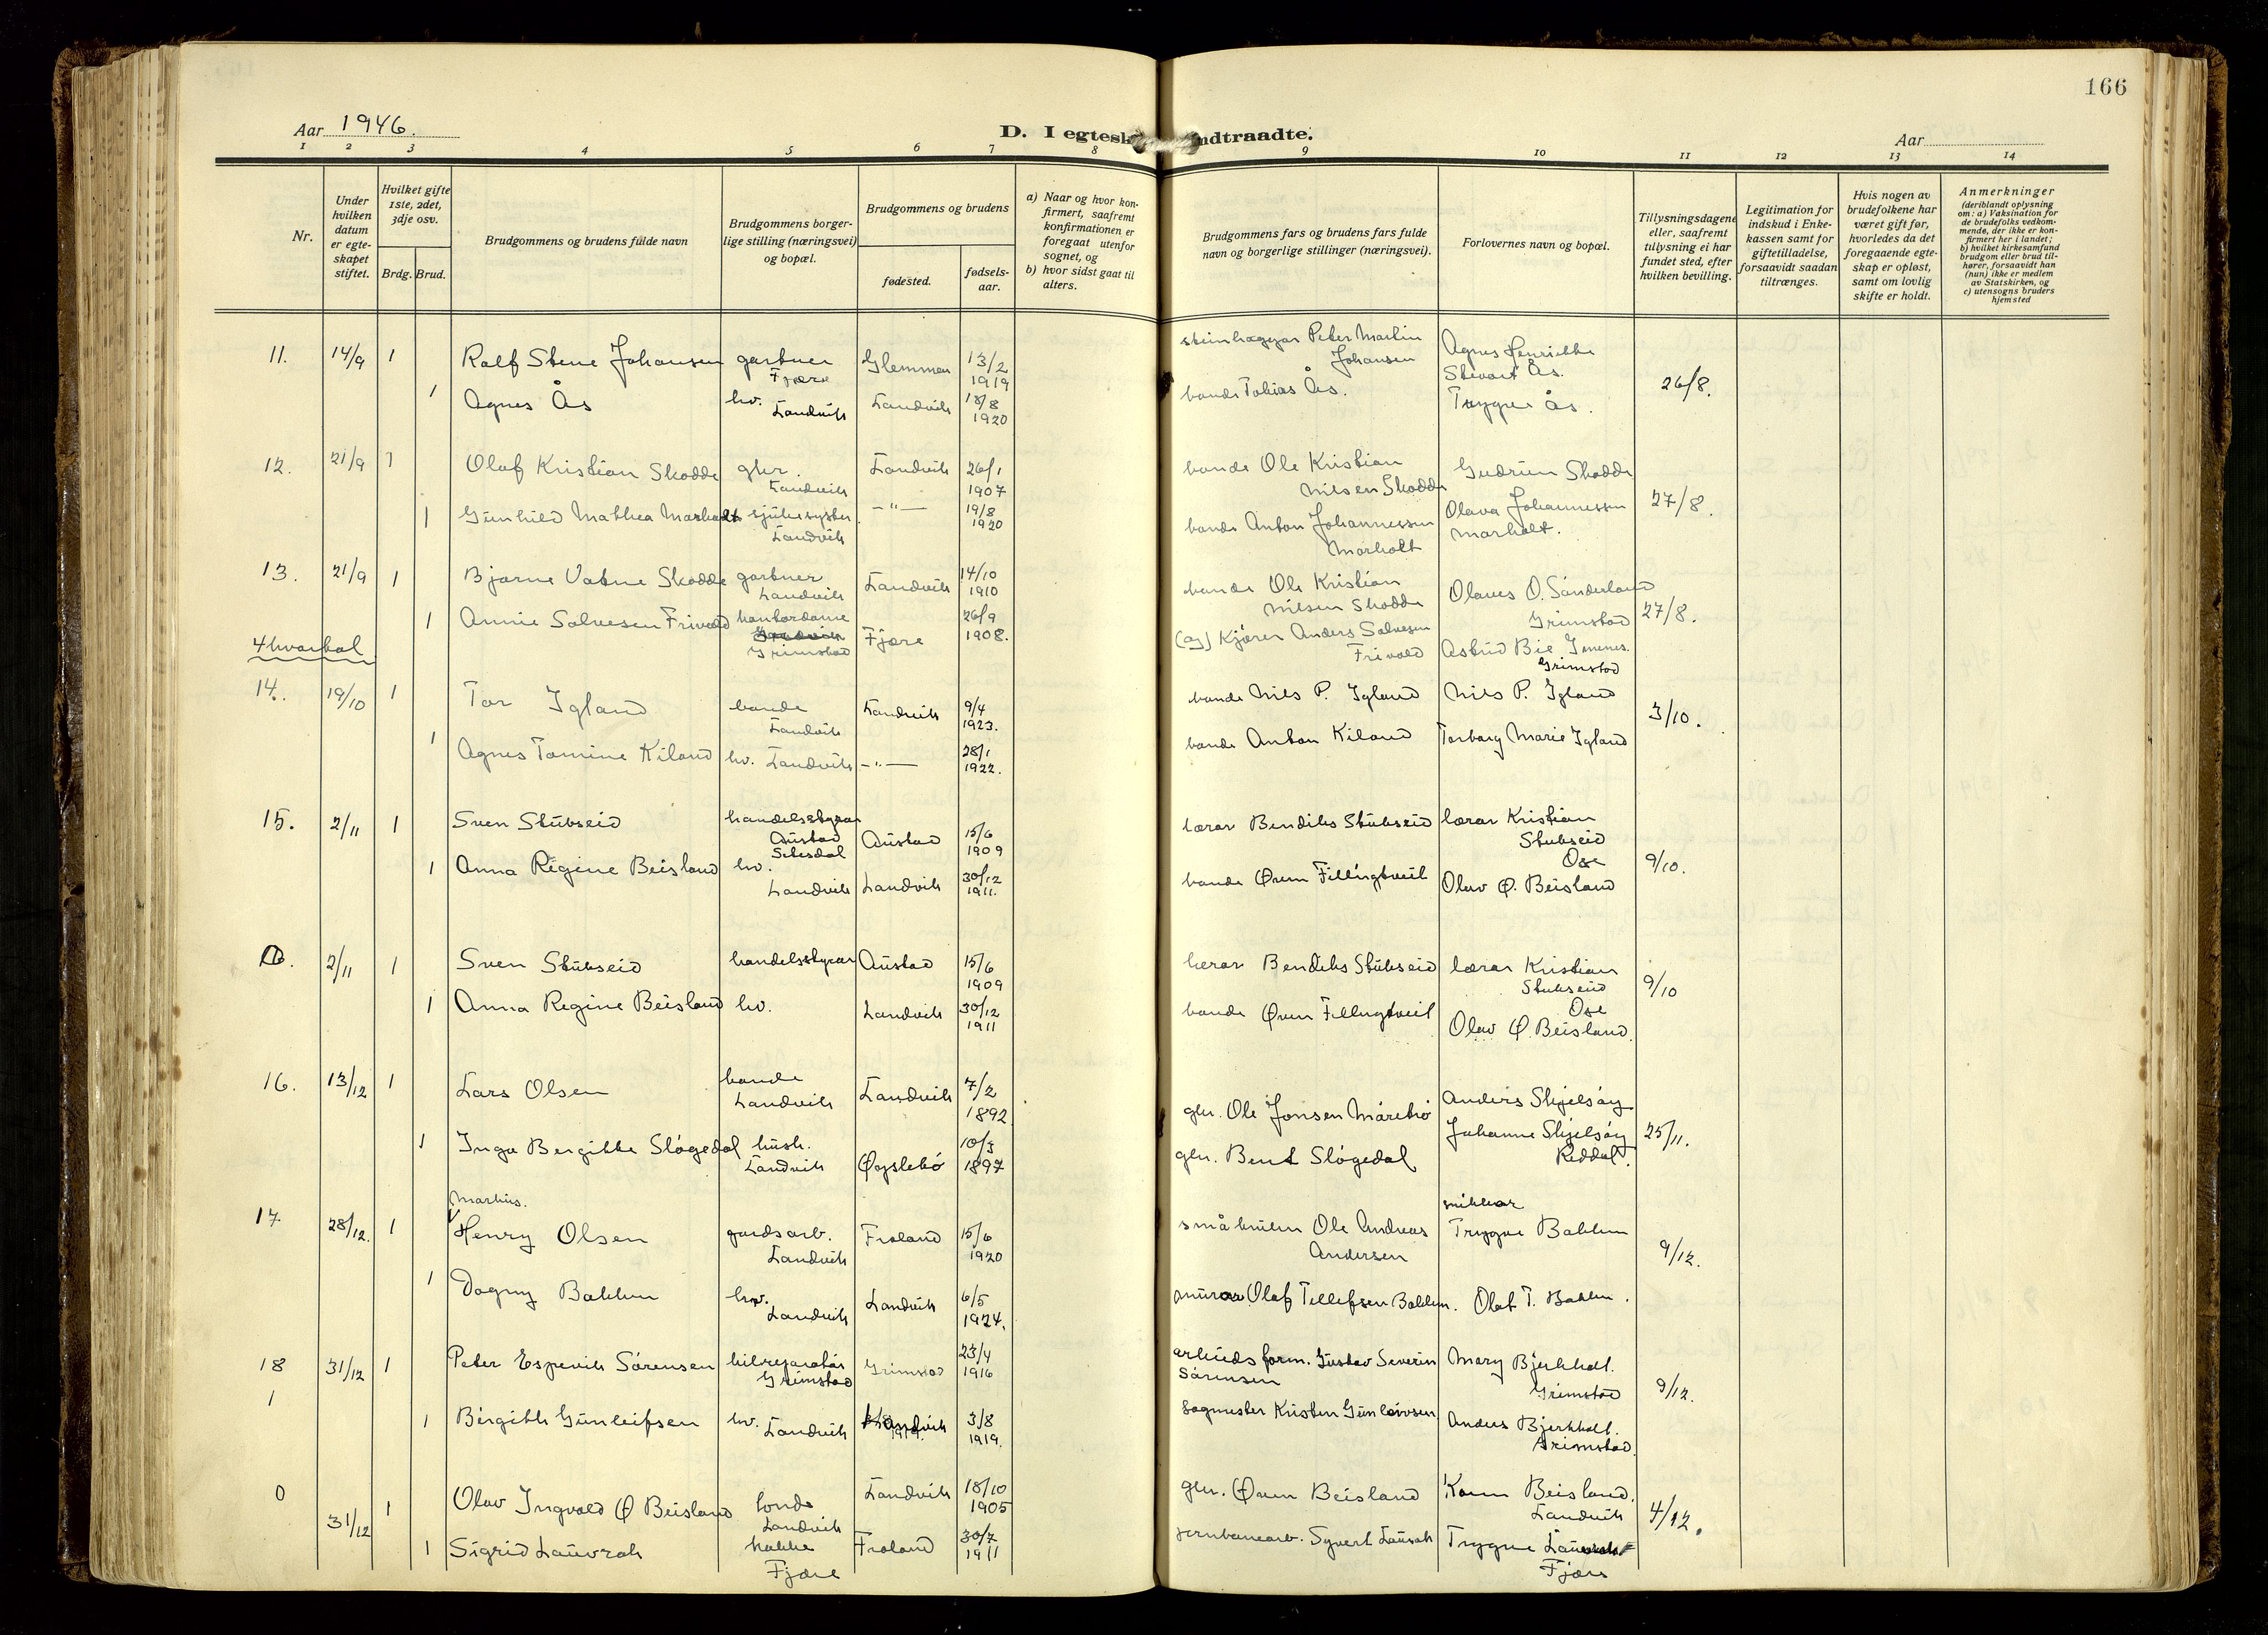 166
Aar 1946.
D. I egtesk ndtraadte.
Aar
1 2 3 4 5 6 7 8 9 10 11 12 13 14
Nr.
Under hvilken datum er egteskapet stiftet.
Hvilket gifte 1ste, 2det, 3dje osv.
Brdg. Brud.
Brudgommens og brudens fulde navn
Brudgommens borgerlige stilling (næringsvei) og bopæl.
Brudgommens og brudens
fødested.
fødselsaar.
a) Naar og hvor konfirmert, saafremt konfirmationen er foregaat utenfor sognet, og
b) hvor sidst gaat til alters.
Brudgommens fars og brudens fars fulde navn og borgerlige stillinger (næringsvei).
Forlovernes navn og bopæl.
Tillysningsdagene eller, saafremt tillysning ei har fundet sted, efter hvilken bevilling.
Legitimation for indskud i Enkekassen samt for giftetilladelse, forsaavidt saadan tiltrænges.
Hvis nogen av brudefolkene har været gift før, hvorledes da det foregaaende egteskap er opløst, samt om lovlig skifte er holdt.
Anmerkninger
(deriblandt oplysning om: a) Vaksination for de brudefolks vedkommende, der ikke er konfirmert her i landet;
b) hvilket kirkesamfund brudgom eller brud tilhører, forsaavidt han (hun) ikke er medlem av Statskirken, og
c) utensogns bruders hjemsted
11. 14/9 1 Ralf Stene Johansen gartner Fjære Glemmen 13/2 1919 steinhoggar Peter Martin Johansen Agnes Henriette Stevart Ås. 26/8.
1 Agnes Ås hv. Landvik Landvik 18/8 1920 bonde Tobias Ås. Trygve Ås.
12. 21/9 1 Olaf Kristian Skodde gbr. Landvik Landvik 26/1 1907 bonde Ole Kristian Nilsen Skodde Gudrun Skodde 27/8.
1 Gunhild Mathea Marholt sjukesyster Landvik —"— 19/8 1920 bonde Anton Johannessen Marholt Olava Johannessen Marholt.
13. 21/9 1 Bjarne Vatne Skodde gartner Landvik Landvik 14/10 1910 bonde Ole Kristian Nilsen Skodde Olaves O. Sånderland Grimstad 27/8.
1 Annie Salvesen Frivold kontordame Grimstad Fjære 26/9 1908. Kjører Anders Salvesen Frivold Astrid Bie Grimstad
4 kvartal
14. 19/10 1 Tor Igland bonde Landvik Landvik 9/4 1923. bonde Nils P. Igland Nils P. Igland 3/10.
1 Agnes Tomine Kiland hv. Landvik —"— 28/1 1922. bonde Anton Kiland Torborg Marie Igland
15. 2/11 1 Sven Stubseid handelsstyrar Austad Setesdal Austad 15/6 1909 lærar Bendiks Stubseid lærar Kristian Stubseid Ose 9/10.
1 Anna Regine Beisland hv. Landvik Landvik 30/12 1911. bonde Øven Fillingtveit Olav Ø. Beisland
2/11 1 Sven Stubseid handelsstyrar Austad 15/6 1909 lærar Bendiks Stubseid lærar Kristian Stubseid Ose 9/10
1 Anna Regine Beisland hv. Landvik 30/12 1911 bonde Øven Fillingtveit Olav Ø. Beisland.
16. 13/12 1 Lars Olsen bonde Landvik Landvik 7/2 1892 gbr. Ole Jonsen Mårebø Anders Skjelsøy 25/11.
1 Inga Bergitte Sløgedal hush. Landvik Øyslebø 10/3 1897 gbr. Bent Sløgedal Johanne Skjelsøy Reddal.
17 28/12. 1 Markus. Henry Olsen gardsarb. Landvik Froland 15/6 1920 småbruker Ole Andreas Andersen snikkar Trygve Bakken 9/12.
1 Dagny Bakken hv. Landvik Landvik 6/5 1924. murar Olaf Tellefsen Bakken. Olaf T. Bakken.
18 31/12 1 Peter Espevik Sørensen bilreparatør Grimstad Grimstad 23/4 1916 arbeidsform. Gustav Severin Sørensen Mary Bjerkholt. Grimstad 9/12.
1
1 Birgith Gunleifsen hv. Landvik Landvik 3/8 1919. sagmester Kristen Gunleivsen Anders Bjerkholt. Grimstad.
0 31/12 1 Olav Ingvald Ø Beisland bonde Landvik Landvik 18/10 1905 gbr. Øven Beisland Karen Beisland. Landvik 4/12.
1 Sigrid Lauvrak kokke Fjære Froland 30/7 1911 jernbanearb. Syvert Lauvrak Trygve Lauvrak Fjære